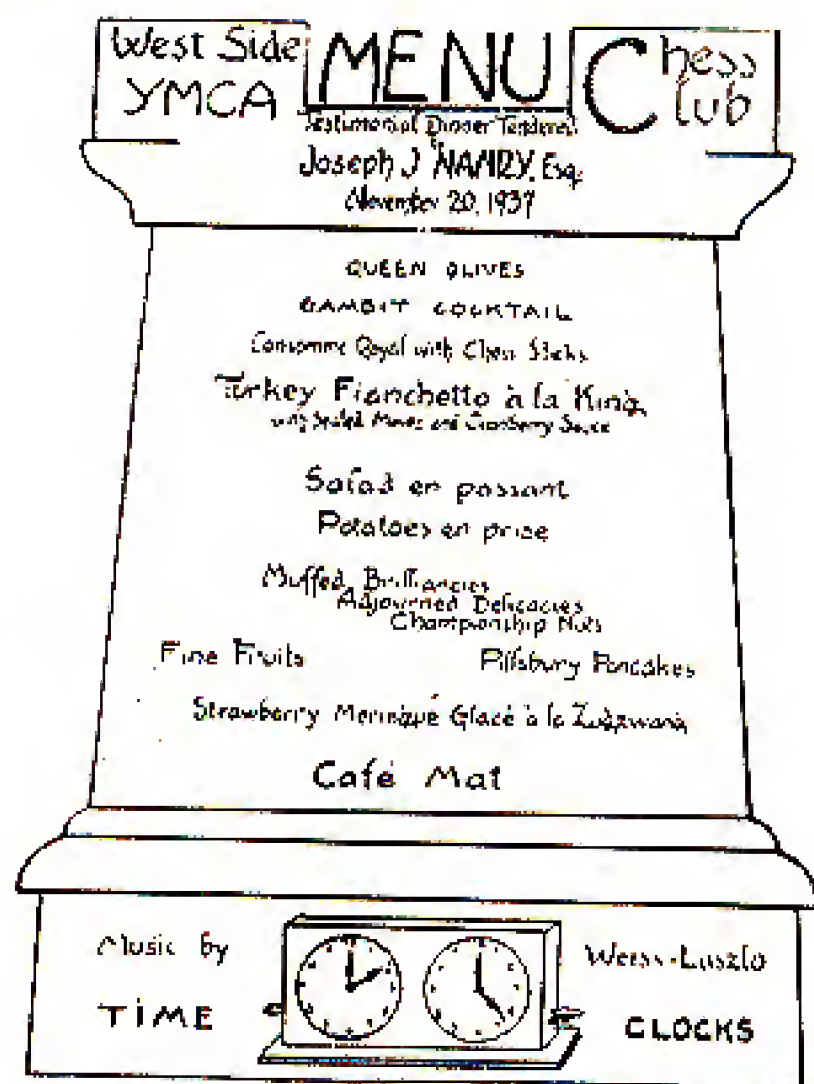 West Side
YMCA
MENU
Chess
Club
Testimonial Dinner Tendered
to
Joseph J NAMRY, Esq.
November 20, 1937
QUEEN OLIVES
GAMBIT COCKTAIL
Consomme Royal with Chess Sticks
Turkey Fianchetto à la King
with Sealed Moves and Cranberry Sauce
Salad en passant
Potatoes en prise
Muffed Brilliancies
Adjourned Delicacies
Championship Nuts
Fine Fruits
Pillsbury Pancakes
Strawberry Meringue Glacé à la Zugzwang
Café Mat
Music by
Weiss-Laszlo
TIME
CLOCKS